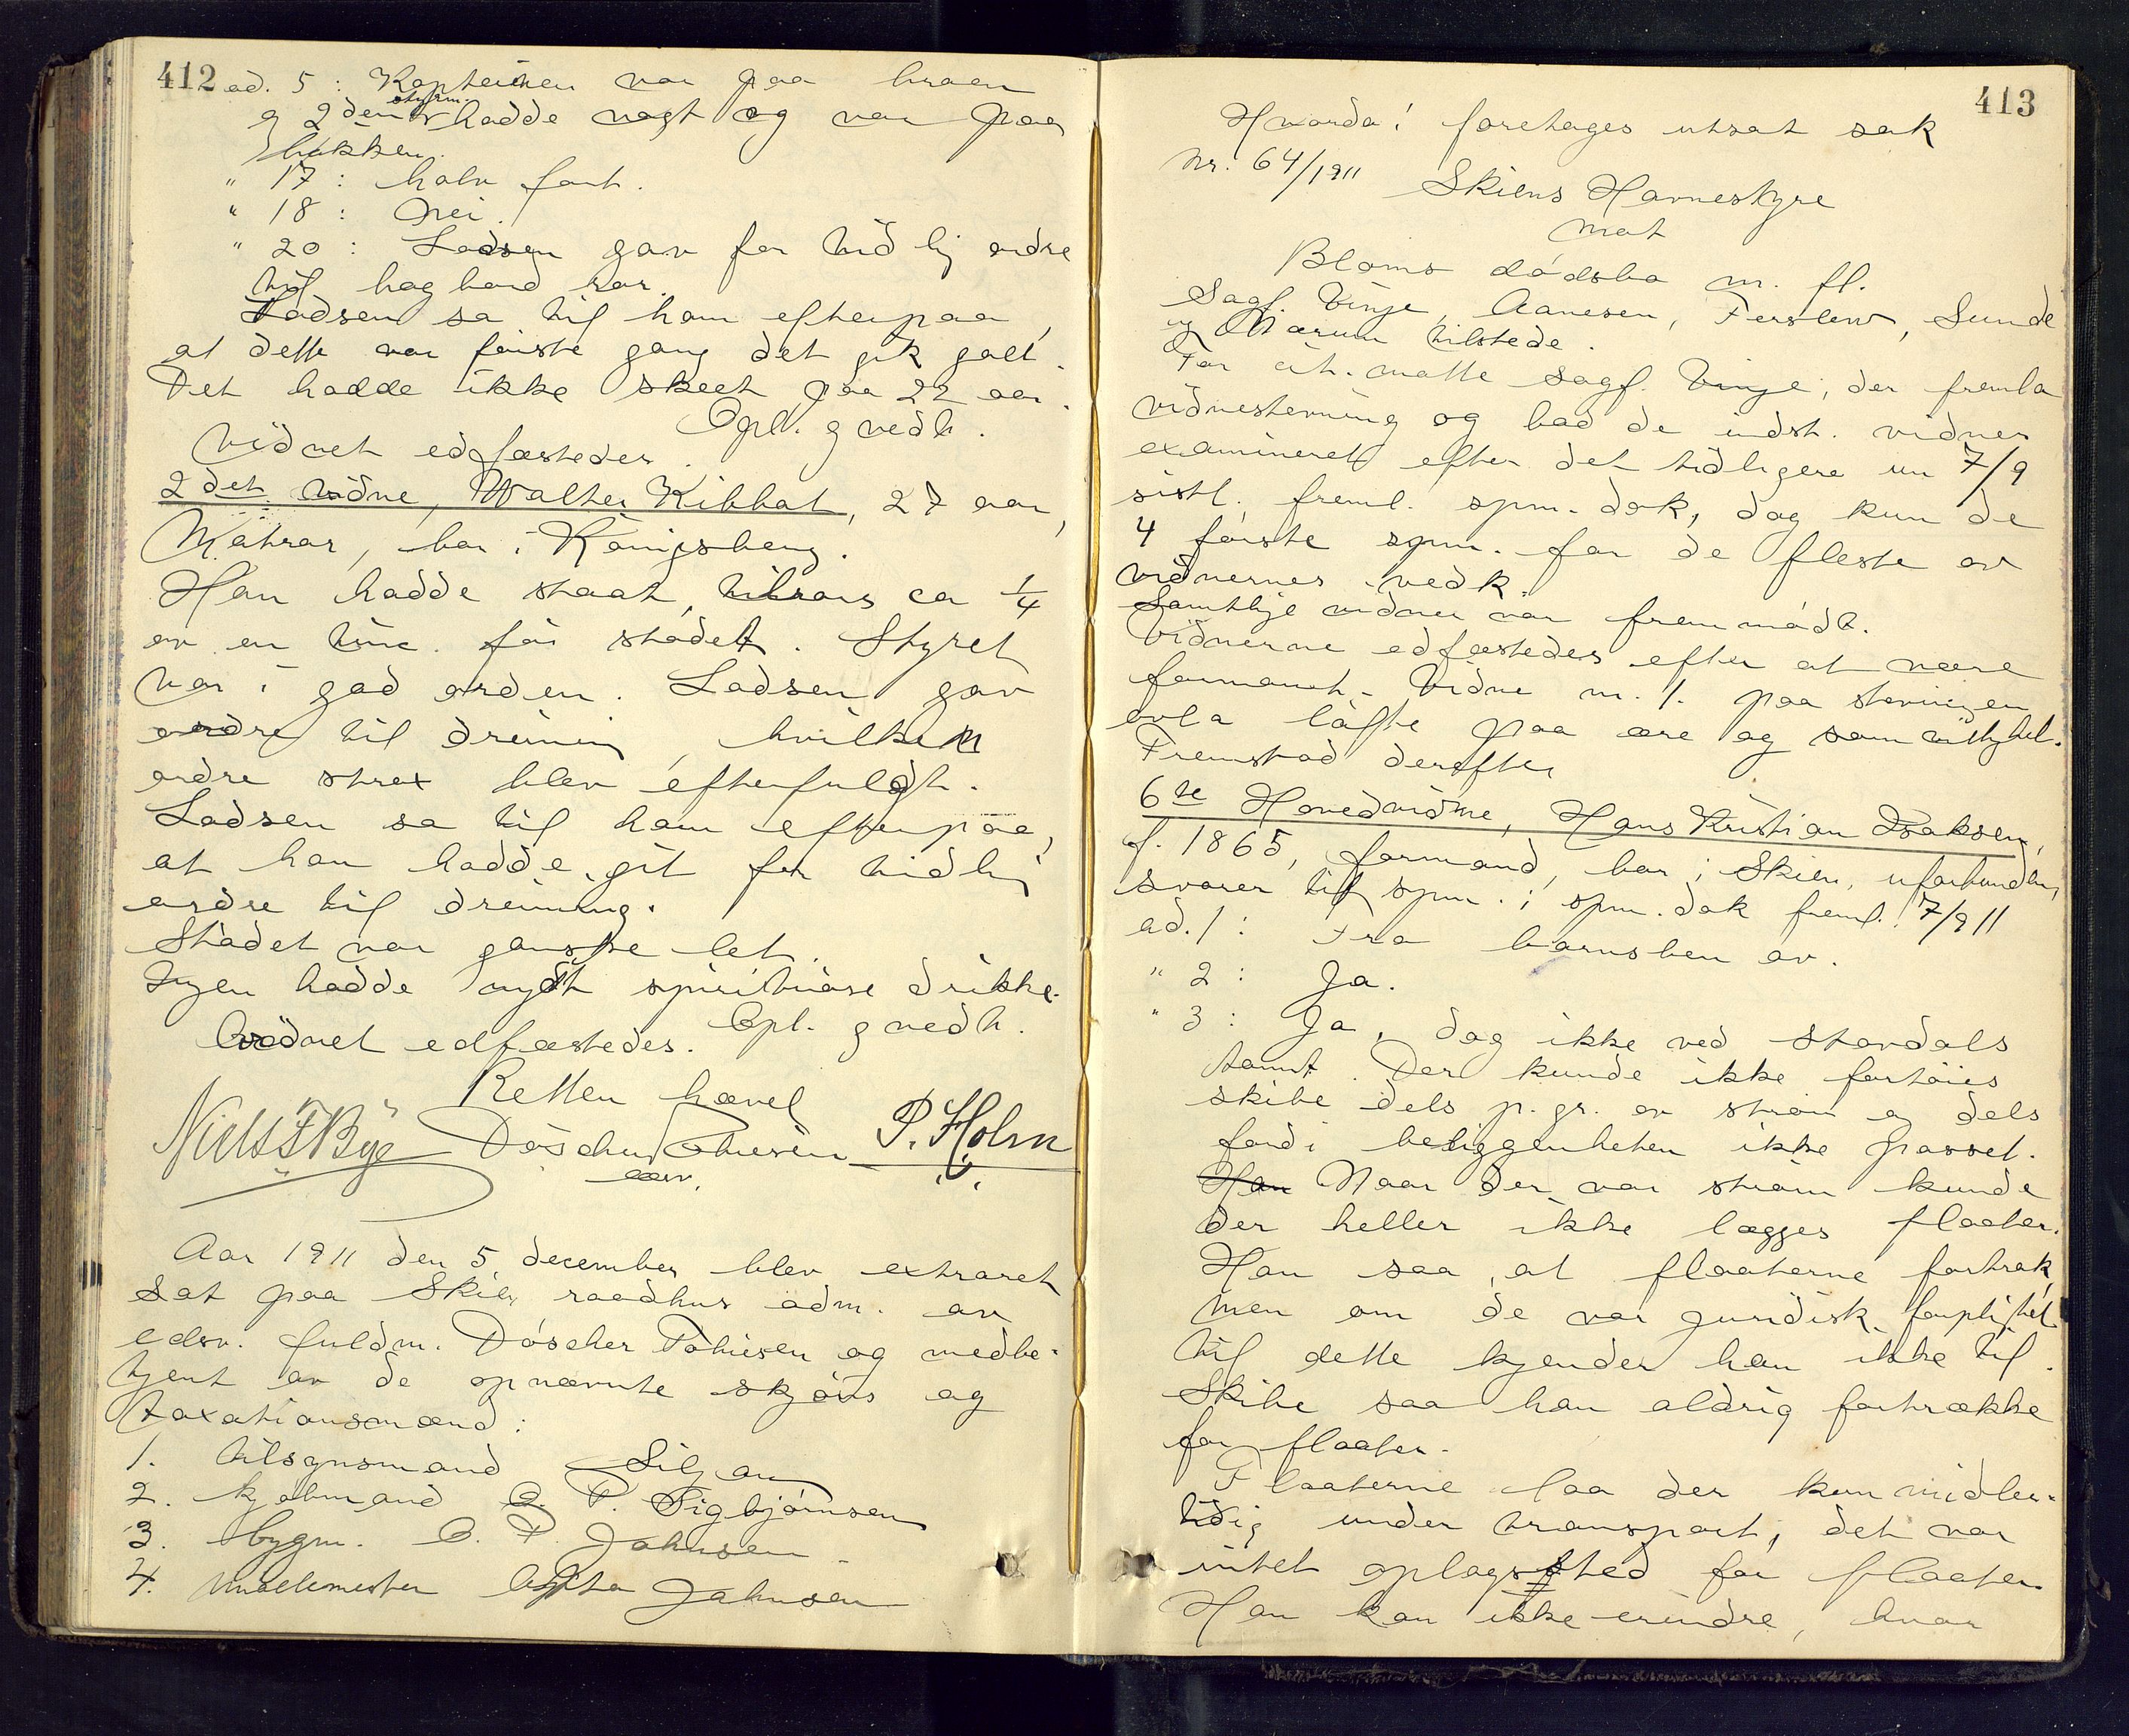 412 ad. 5 : Kapteinen var paa broen
styrm.
og 2den hadde vagt og var paa
bakken.
" 17 : halv fart.
" 18 : Nei.
" 20 : Lodsen gav for tidlig ordre
til bagbord ror.
Lodsen sa til ham efterpaa,
at dette var første gang det gik galt.
Det hadde ikke skeet paa 22 aar.
Opl. og vedt.
Vidnet edfæstedes.
2det vidne, Walter Kibbat, 27 aar,
Matros, bor i Königsberg.
Han hadde staat tilrors ca 1/4
av en time før stødet. Styret
var i god orden. Lodsen gav
ordre til dreining, hvilken
ordre strax blev efterfuldgt.
Lodsen sa til ham efterpaa,
at han hadde git for tidlig
ordre til dreining.
Stødet var ganske let.
Ingen hadde nydt spirituøse drikke.
Opl. og vedt.
Vidnet edfæstedes.
Retten hævet
Niels F Bye Döscher Tobiesen P. Holm
edsv.
Aar 1911 den 5 december blev extraret
sat paa Skien raadhus adm. av
edsv. fuldm. Döscher Tobiesen og medbe-
tjent av de opnævnte skjøns og
taxationsmænd:
1. tilsynsmand Siljan
2. kjøbmand O. T. Sigbjørnsen
3. bygm. O. P. Johnsen
4. murmester Johnsen
413
Hvorda: foretages utsat sak
Nr. 64/1911 Skiens Havnestyre
mot
Bloms dødsbo m. fl.
Sagf. Vinje, Aanesen, Ferslew, Sunde
og Mærum tilstede.
For cit. møtte sagf. Vinje, der fremla
vidnestevning og bad de indst. vidner
examineret efter det tidligere un 7/9
sistl. freml. spm. dok, dog kun de
4 første spm. for de fleste av
vidnernes vedk.
Samtlige vidner var fremmødt.
Vidnerne edfæstedes efter at være
formanet. Vidne nr. 1. paa stevningen
avla løfte paa ære og samvittighet.
Fremstod derefter
6te Hovedvidne, Hans Kristian Isaksen,
f. 1865, formand, bor i Skien, uforbunden,
svarer til spm. i spm. dok freml. 7/9 11
ad. 1 : Fra barnsben av.
" 2 : Ja.
" 3 : Ja, dog ikke ved Stordals
tomt. Der kunde ikke fortøies
skibe dels p. gr. av strøm og dels
fordi beliggenheten ikke passet.
Han Naar der var strøm kunde
der heller ikke lægges flaater.
Han saa, at flaaterne fortrak,
men om de var juridisk forpligtet
til dette kjender han ikke til.
Skibe saa han aldrig fortrække
for flaater.
Flaaterne laa der kun midler-
tidig under transport, det var
intet oplagssted for flaater.
Han kan ikke erindre, hvor